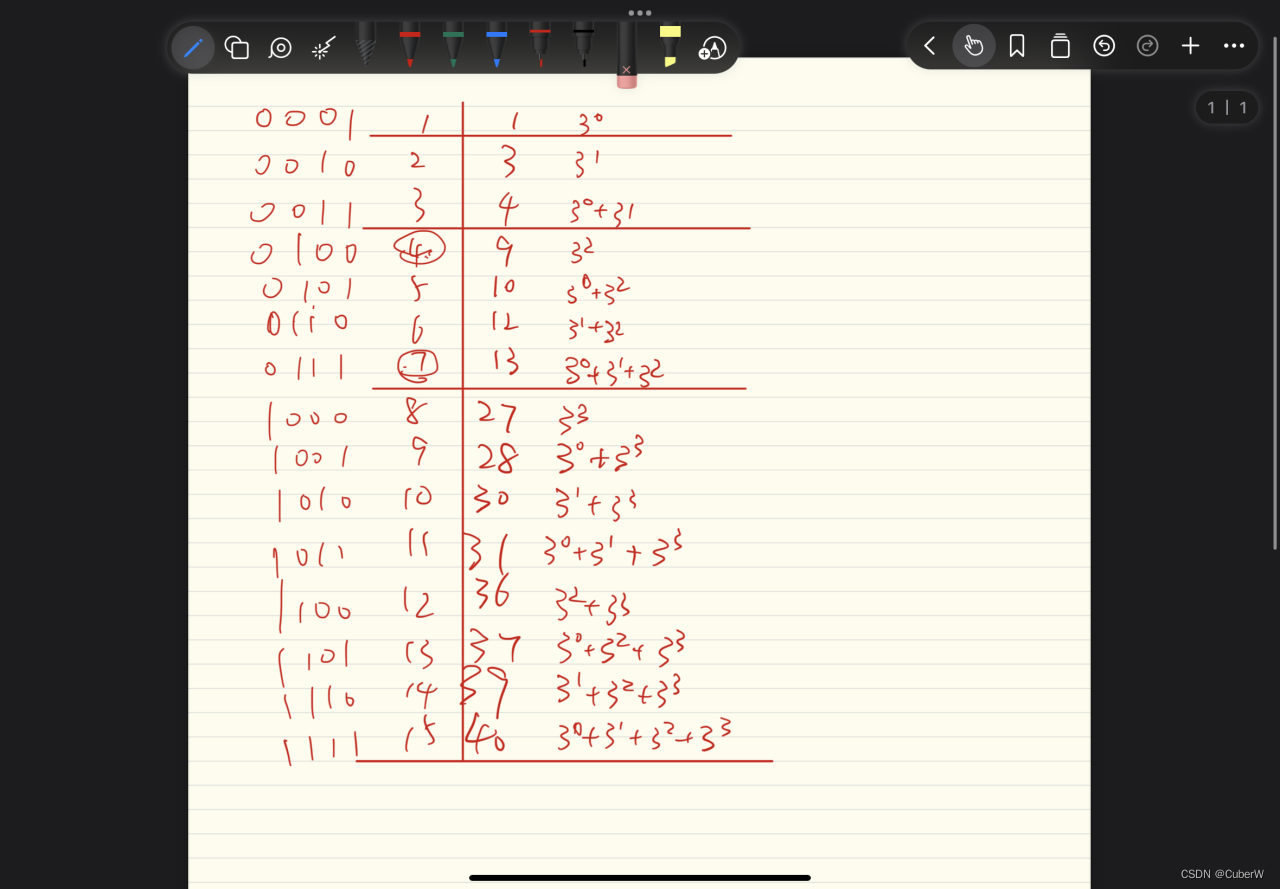 1 | 1
0001 1 1 3⁰
0010 2 3 3¹
0011 3 4 3⁰+3¹
0100 4 9 3²
0101 5 10 3⁰+3²
0110 6 12 3¹+3²
0111 7 13 3⁰+3¹+3²
1000 8 27 3³
1001 9 28 3⁰+3³
1010 10 30 3¹+3³
1011 11 31 3⁰+3¹+3³
1100 12 36 3²+3³
1101 13 37 3⁰+3²+3³
1110 14 39 3¹+3²+3³
1111 15 40 3⁰+3¹+3²+3³
CSDN @CuberW